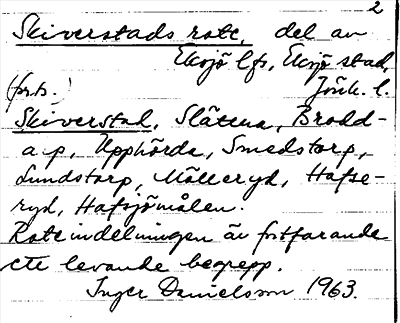 2
Skiverstads rote, del av
Eksjö lfs, Eksjö stad,
(forts.) Jönk. l.
Skiverstad, Slättna, Brodd-
a.p, Upphörda, Smedstorp,
Lundstorp, Mölleryd, Hafse-
ryd, Hafsjömålen.
Roteindelningen är fortfarande
ett levande begrepp.
Inger Danielsson 1963.